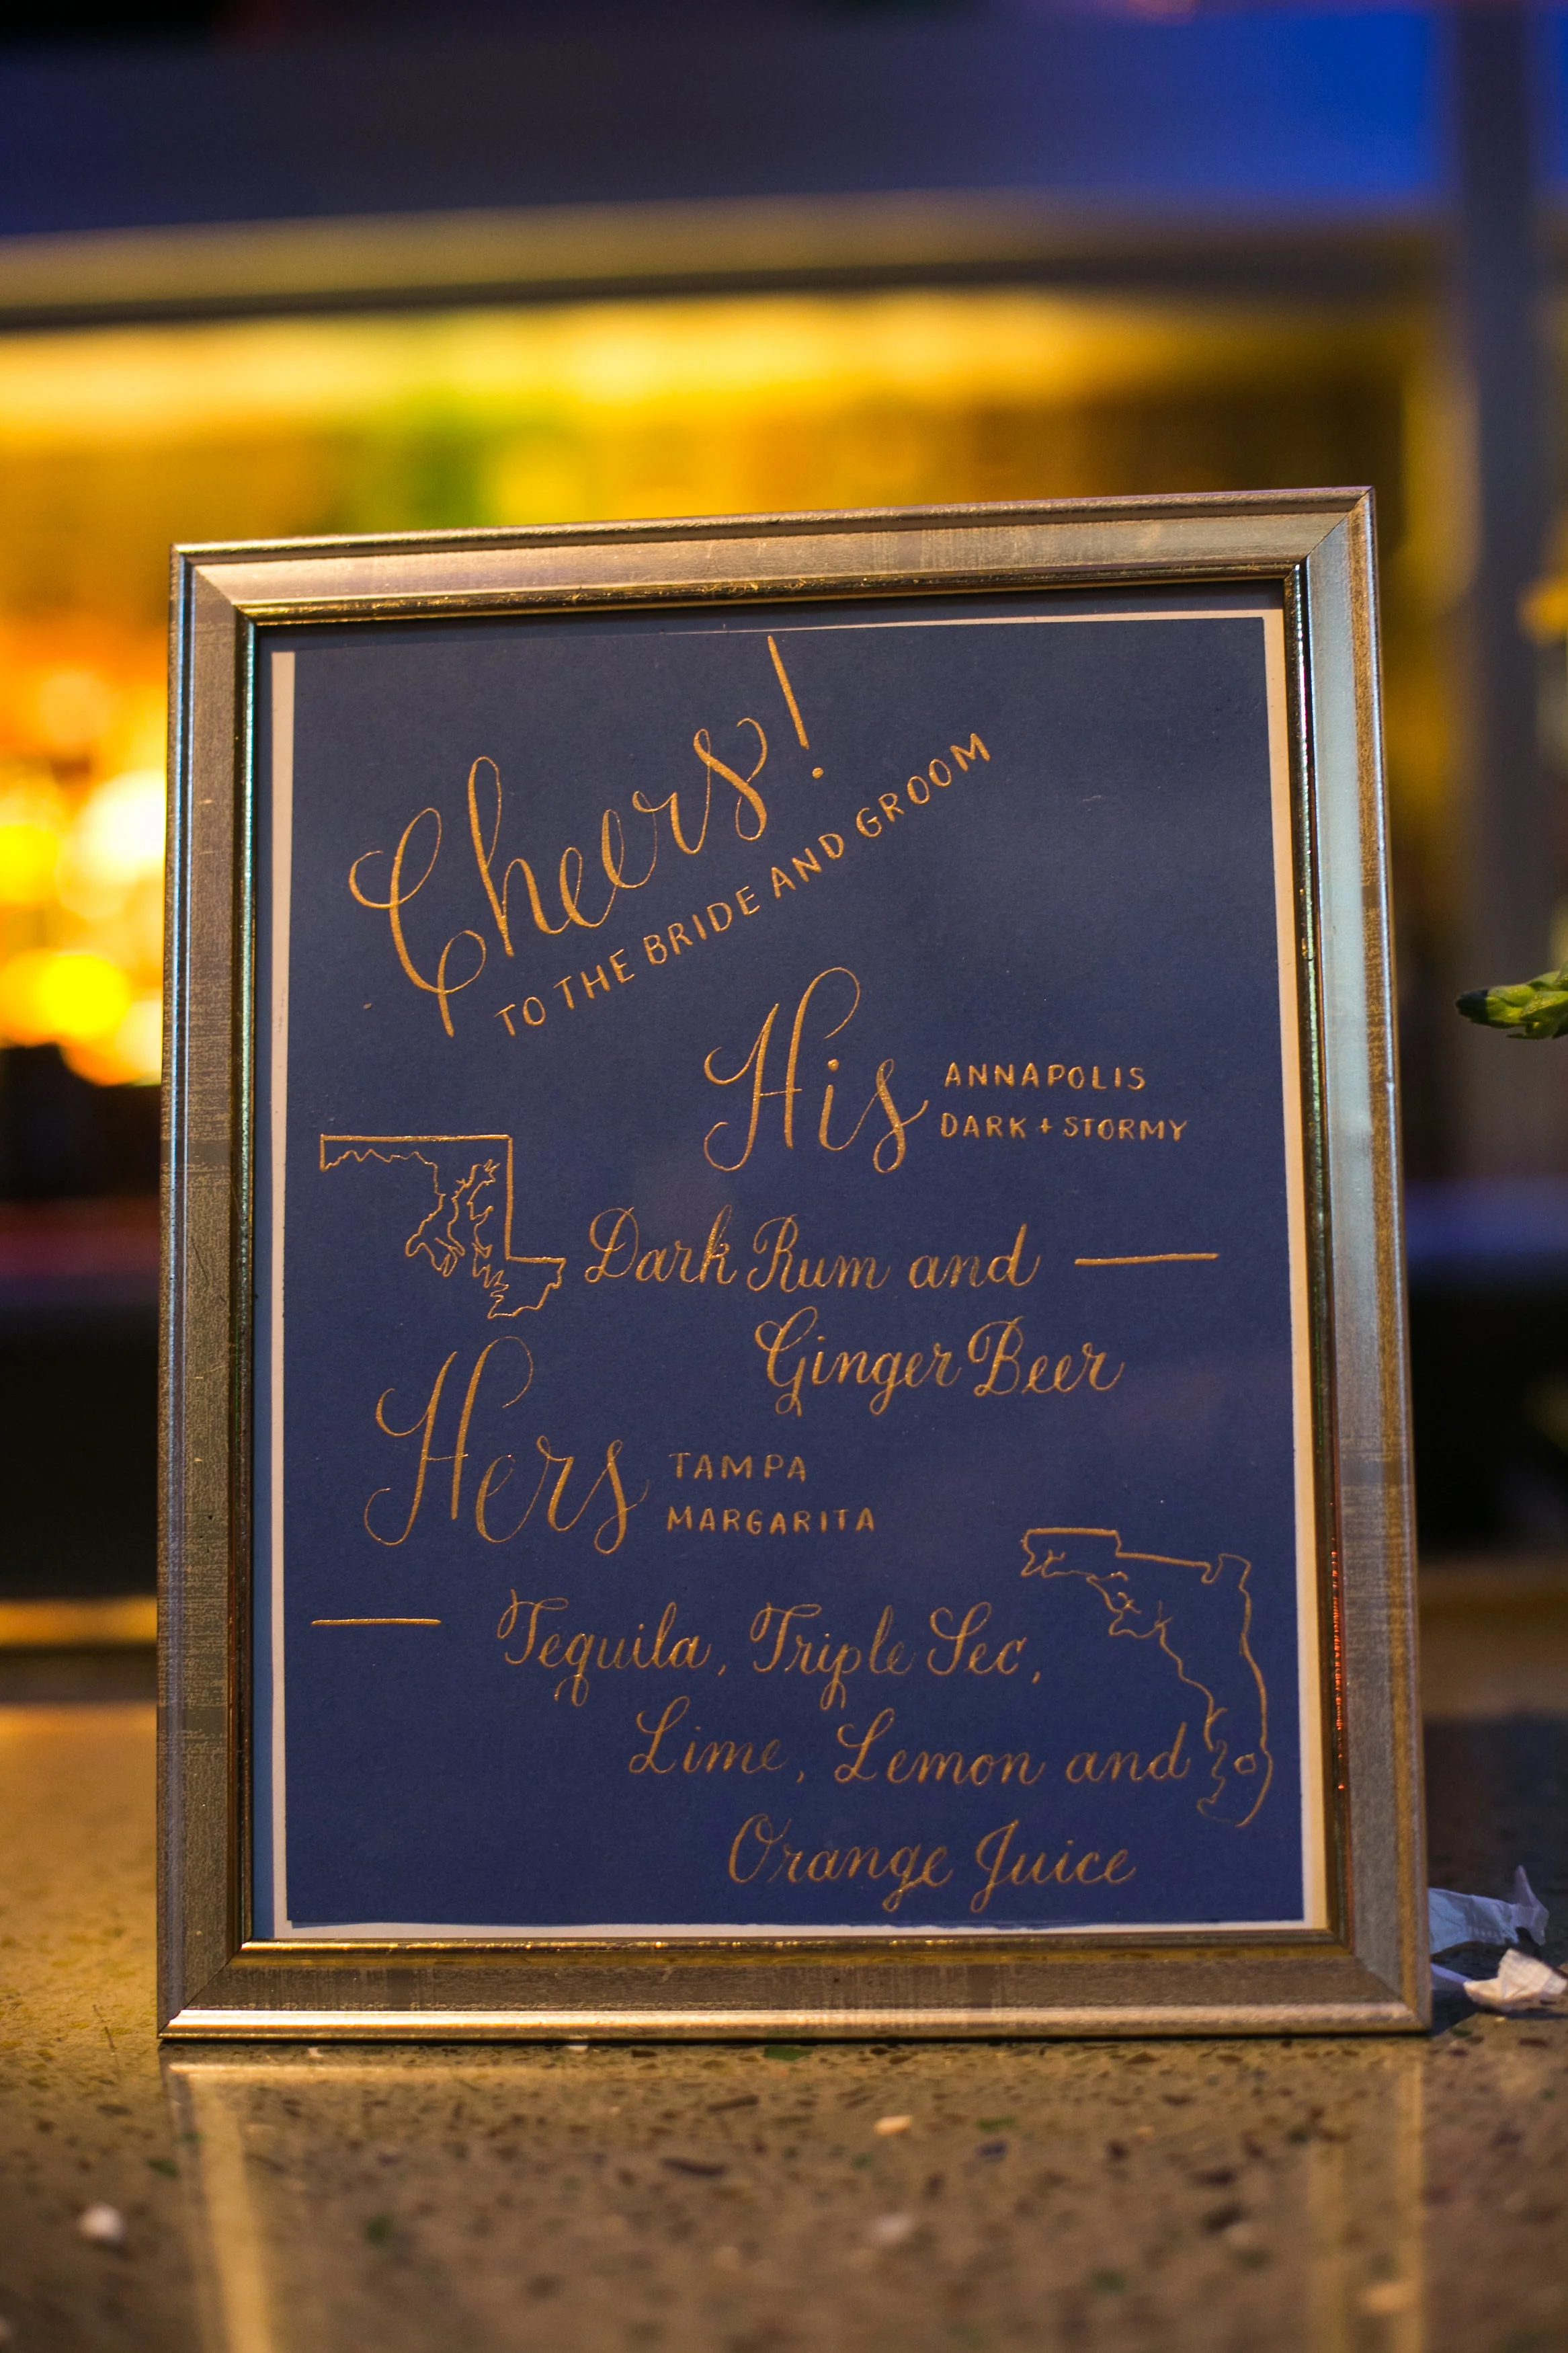 Cheers!
TO THE BRIDE AND GROOM
His
ANNAPOLIS
DARK + STORMY
Dark Rum and
Ginger Beer
Hers
TAMPA
MARGARITA
Tequila, Triple Sec,
Lime, Lemon and
Orange Juice